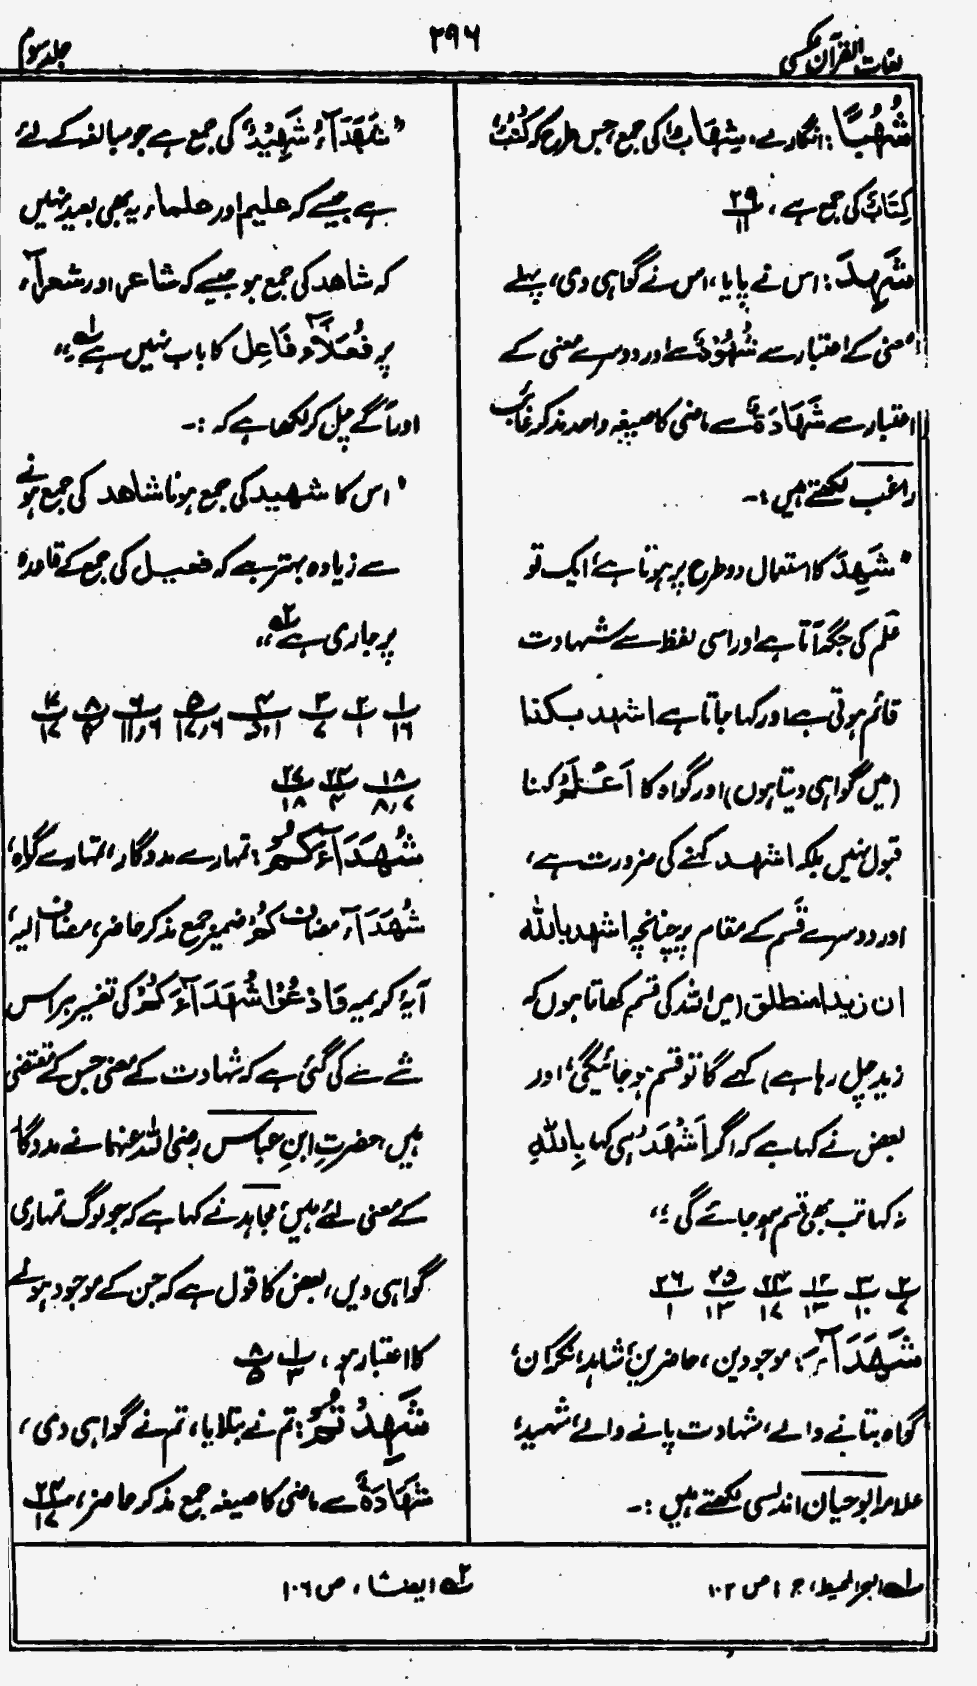 لغات القرآن عکسی
۲۹۶
جلد سوم
شُهُبًا: انگارے، شِهَابٌ کی جمع، جس طرح کہ کُتُبٌ
کِتَابٌ کی جمع ہے، ۲۹/۱۱
شَهِدَ: اس نے پایا، اس نے گواہی دی، پہلے
معنی کے اعتبار سے شُهُوْدٌ سے اور دوسرے معنی کے
اعتبار سے شَهَادَةٌ سے ماضی کا صیغہ واحد مذکر غائب
راغب لکھتے ہیں :۔
"شَهِدَ کا استعمال دو طرح پر ہوتا ہے، ایک تو
علم کی جگہ آتا ہے اور اسی لفظ سے شہادت
قائم ہوتی ہے اور کہا جاتا ہے اشهد بکذا
(میں گواہی دیتا ہوں) اور گواہ کا اَعْلَمُ کہنا
قبول نہیں بلکہ اشهد کہنے کی ضرورت ہے،
اور دوسرے قَسم کے مقام پر چنانچہ اشهد بالله
ان زیدا منطلق (میں اللہ کی قسم کھاتا ہوں کہ
زید چل رہا ہے) کہے گا تو قسم ہو جائیگی، اور
بعض نے کہا ہے کہ اگر اَشْهَدُ ہی کہا بِاللهِ
نہ کہا تب بھی قسم ہو جائے گی؛"
۲/۷ ۳/۱۰ ۱۲/۱۳ ۲۴/۱۷ ۲۵/۱۳ ۲۶/۱
شُهَدَآءَ: موجودین، حاضرین، شاہد، نگران،
گواہ بتانے والے، شہادت پانے والے، شہید،
علامہ ابو حیان اندلسی لکھتے ہیں :۔
"شُهَدَآءُ شَهِیْدٌ کی جمع ہے جو مبالغہ کے لئے
ہے جیسے کہ علیم اور علماء، یہ بھی بعید نہیں
کہ شاهد کی جمع ہو جیسے کہ شاعر اور شعرآء،
پر فُعَلَآءُ فَاعِل کا باب نہیں ہے لہ؛"
اور آگے چل کر لکھا ہے کہ :۔
"اس کا شهید کی جمع ہونا شاهد کی جمع ہونے
سے زیادہ بہتر ہے کہ فعیل کی جمع کے قاعدہ
پر جاری ہے ۲ہ"
۱/۱۶ ۲/۱ ۳/۷ ۴/۵،۱ ۵/۱۷،۶ ۶/۱۱،۶ ۸/۴ ۷/۱۷
۱۸/۸،۷ ۲۴/۴ ۲۷/۱۸
شُهَدَآءَکُمْ: تمہارے مددگار، تمہارے گواہ،
شُهَدَآءَ مضاف کُمْ ضمیر جمع مذکر حاضر، مضاف الیہ،
آیۂ کریمہ وَادْعُوْا شُهَدَآءَکُمْ کی تفسیر ہر اس
شے سے کی گئی ہے کہ شہادت کے معنی جس کے مقتضی
ہیں، حضرتِ ابنِ عباس رضی اللہ عنہما نے مددگار
کے معنی لئے ہیں، مجاہد نے کہا ہے کہ جو لوگ تمہاری
گواہی دیں، بعض کا قول ہے کہ جن کے موجود ہونے
کا اعتبار ہو، ۱/۳ ۸/۵
شَهِدْتُّمْ: تم نے بتلایا، تم نے گواہی دی،
شَهَادَةٌ سے ماضی کا صیغہ جمع مذکر حاضر، ۲۴/۱۷
لہ البحر المحیط، ج ۱ ص ۱۰۲
۲ہ ایضًا، ص ۱۰۶